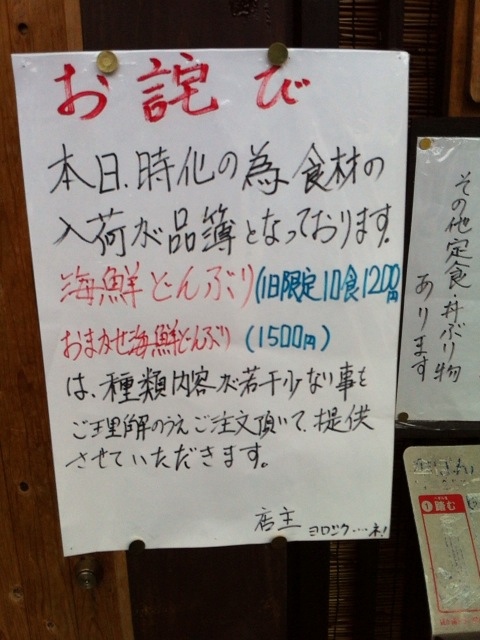 お詫び
本日、時化の為、食材の
入荷が品簿となっております。
海鮮どんぶり(1日限定10食1200円)
おまかせ海鮮どんぶり (1500円)
は、種類内容が若干少ない事を
ご理解のうえご注文頂いて、提供
させていただきます。
店主 ヨロシク…ネ!
その他定食・丼ぶり物
あります
①踏む